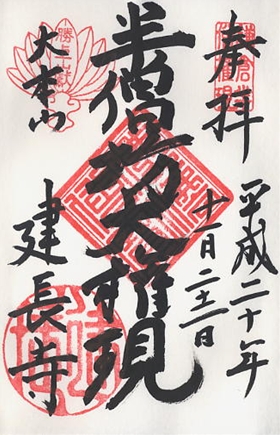 奉拝
平成二十年
十一月二十三日
半僧坊大権現
大本山
建長寺